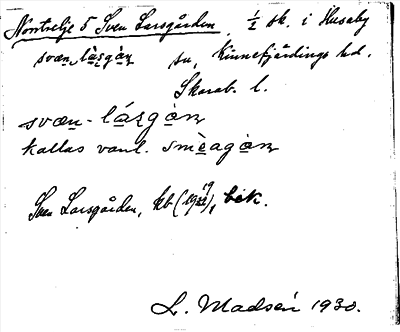 Norrtelje 5 Sven Larsgården, 1/2 sk. i Husaby
svæn_làsgàɳ sn, Kinnefjärdings hd.
Skarab. l.
svæn-lázgàɳ
kallas vanl. smèagàɳ
Sven Larsgården, kb (19), bek.
L. Madsén 1930.